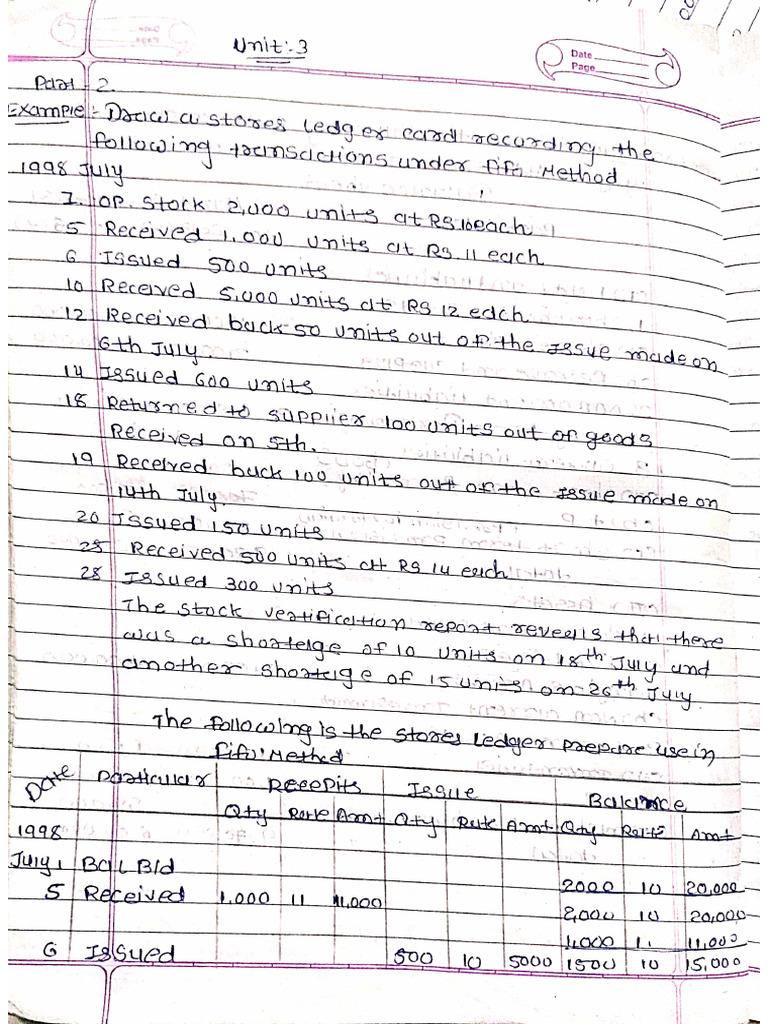 Unit:-3
Date
Page
Part - 2.
Example:- Draw a stores ledger card recording the
following transactions under fifo Method
1998 July
1. OP. Stock 2,000 units at RS.10 each
5 Received 1,000 units at Rs 11 each
6 Issued 500 units
10 Received 5,000 units at RS 12 each
12 Received back 50 units out of the issue made on
6th July.
14 Issued 600 units
18 Returned to supplier 100 units out of goods
Received on 5th.
19 Received back 100 units out of the issue made on
14th July.
20 Issued 150 units
25 Received 500 units at Rs 14 each
28 Issued 300 units
The stock verification report reveals that there
was a shortage of 10 units on 18th July and
another shortage of 15 units on 26th July.
The following is the stores Ledger prepare use in
fifo Method
Date Particular Receipts Issue Balance
Qty Rate Amt Qty Rate Amt Qty Rate Amt
1998
July 1 Bal B/d 2000 10 20,000
5 Received 1,000 11 11,000 2,000 10 20,000
1,000 11 11,000
6 Issued 500 10 5000 1500 10 15,000